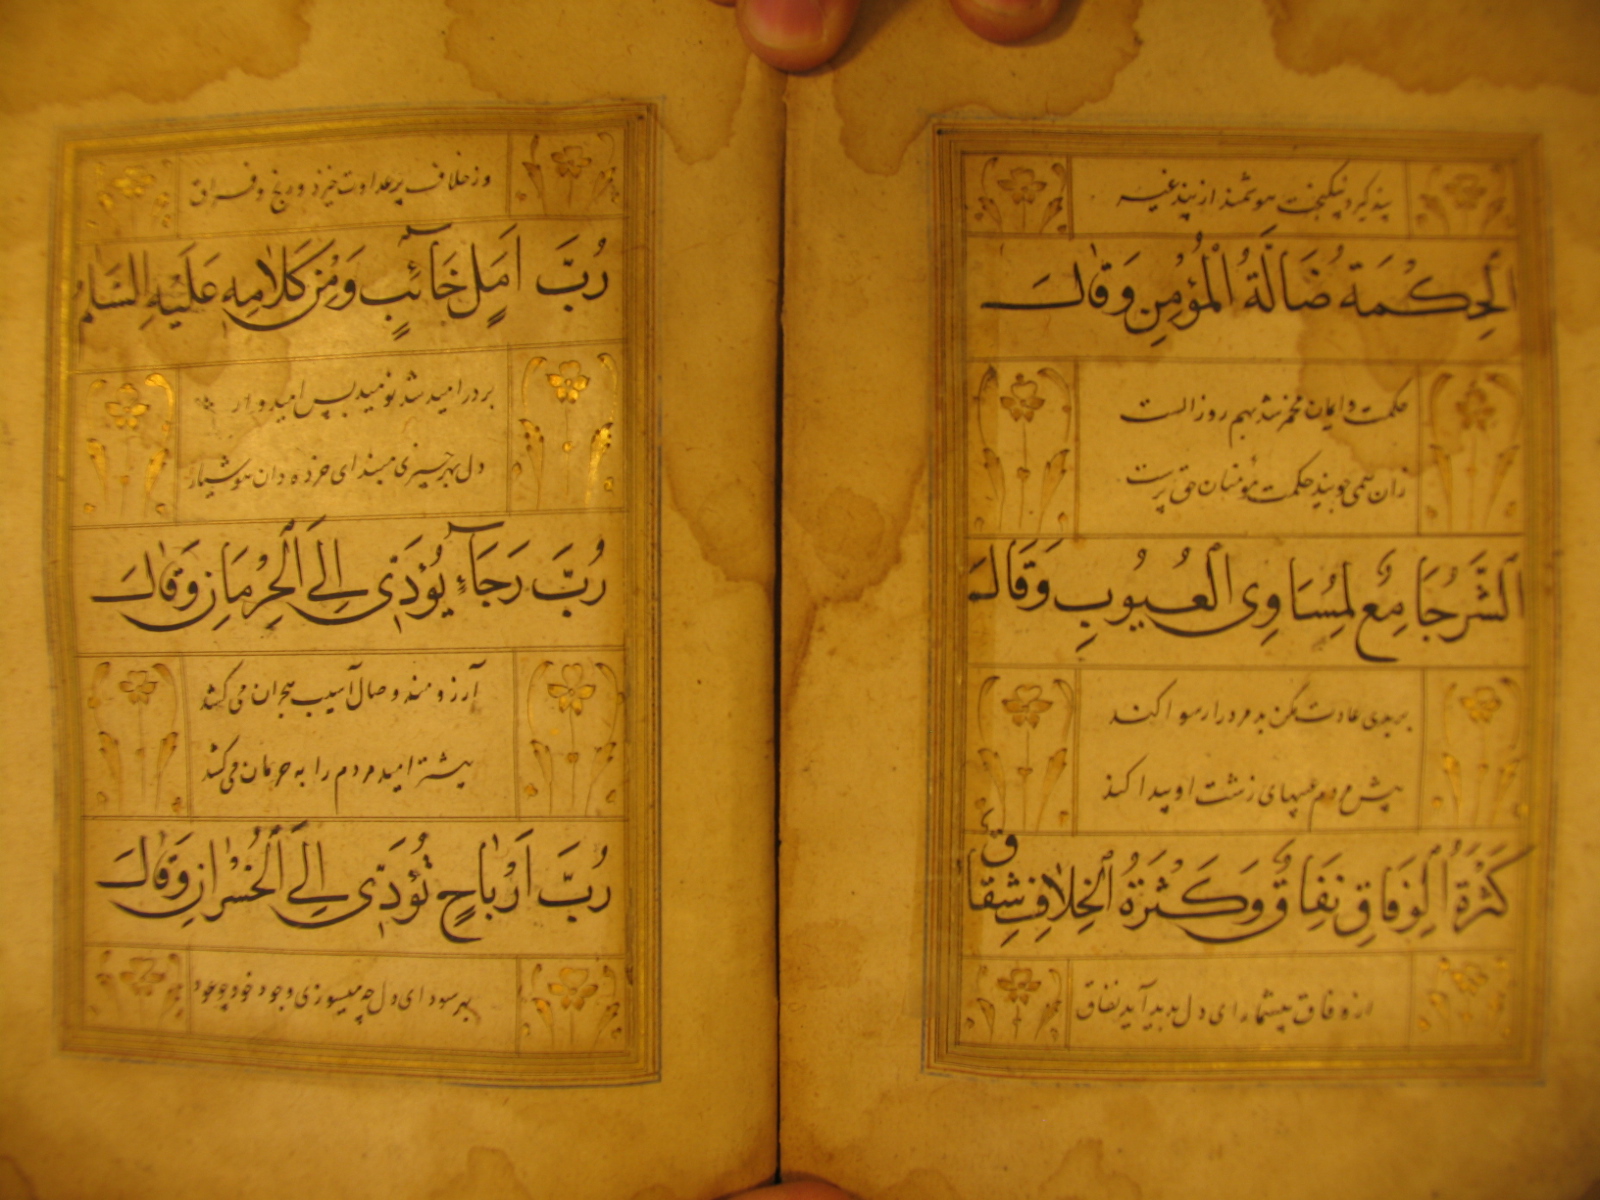 پند گیرد نیکبخت هوشمند از پند غیر
اَلْحِكْمَةُ ضَالَّةُ الْمُؤْمِنِ وَقَالَ
حکمت و ایمان مخمر شد بهم روز الست
زان همی جویند حکمت مؤمنان حق پرست
اَلشَّرُّ جَامِعٌ لِمَسَاوِى الْعُيُوبِ وَقَالَ
بر بدی عادت مکن بد مرد را رسوا کند
پیش مردم عیبهای زشت او پیدا کند
كَثْرَةُ الْوِفَاقِ نِفَاقٌ وَكَثْرَةُ الْخِلَافِ شِقَاقٌ
از وفاق بیشمار ای دل پدید آید نفاق
وز خلاف پر عداوت خیزد و رنج و فراق
رُبَّ اَمَلٍ خَائِبٍ وَمِنْ كَلَامِهِ عَلَيْهِ السَّلَامُ
بر در امید شد نومید بس امیدوار
دل بهر چیزی مبند ای خرده دان هوشیار
رُبَّ رَجَاءٍ يُؤَدِّى اِلَى الْحِرْمَانِ وَقَالَ
آرزومند وصال آسیب هجران می کشد
بیشتر امید مردم را به حرمان می کشد
رُبَّ اَرْبَاحٍ تُؤَدِّى اِلَى الْخُسْرَانِ وَقَالَ
بهر سود ای دل چه میسوزی وجود خود چو عود